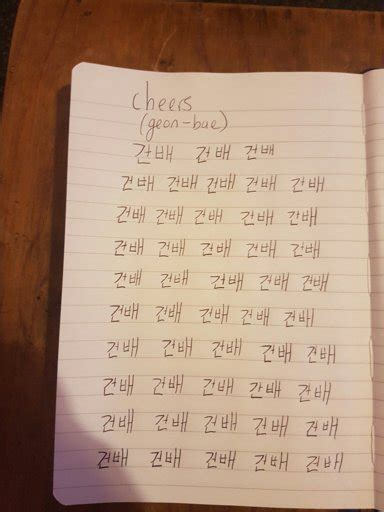 cheers
(geon-bae)
간배 건배 건배
건배 건배 건배 건배 간배
건배 건배 건배 건배 간배
건배 건배 건배 건배 건배
건배 건배 건배 건배 건배
건배 건배 건배 건배 건배
건배 건배 건배 건배 건배
건배 건배 건배 간배 건배
건배 건배 건배 건배 건배
건배 건배 건배 건배 건배